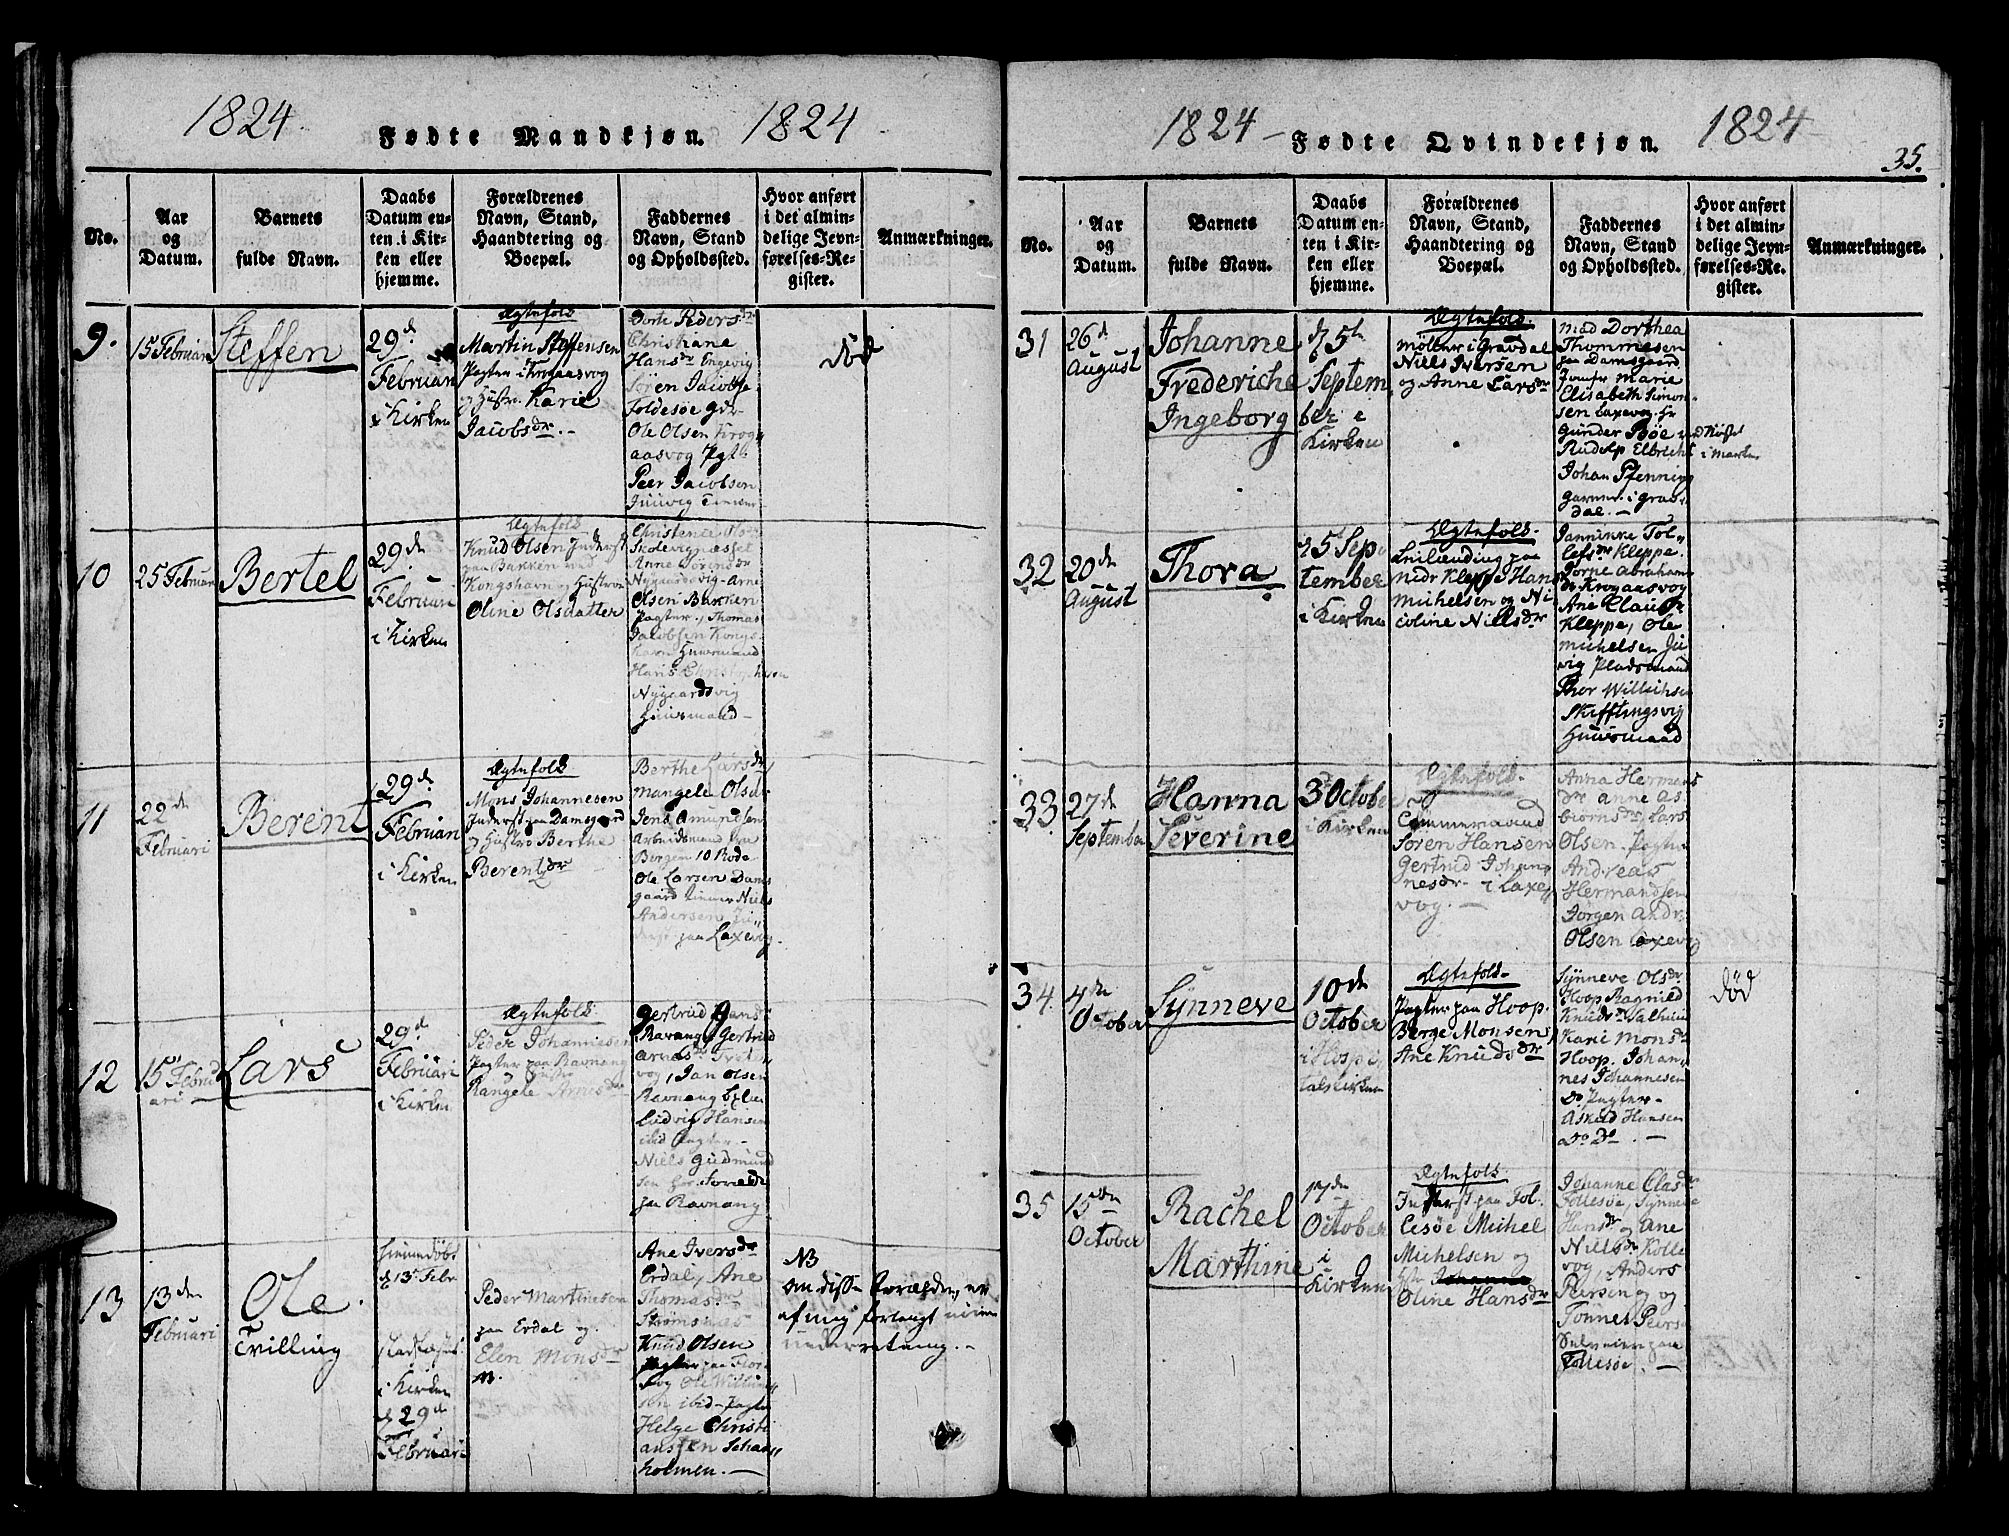 1824
Fødte Mandkjøn.
1824
No.
Aar
og
Datum.
Barnets
fulde Navn.
Daabs
Datum en-
ten i Kir-
ken eller
hjemme.
Forældrenes
Navn, Stand,
Haandtering og
Boepæl.
Faddernes
Navn, Stand
og Opholdssted.
Hvor anført
i det almin-
delige Jevn-
førelses-Re-
gister.
Anmærkninger.
9.
15 Februari
Steffen
29d
Februari
i Kirken
Ægtefolk
Martin Steffensen
Pagter i Krogaasvog
og Hustr. Karie
Jacobsdr. -
Dorte Pedersdr
Christiane
Hansdr Ingevig
Søren Jacobse
Foldesøe gdr
Ole Olsen Krog
aasvog Pgtr
Peer Jacobsen
død
10
25 Februari
Bertel
29de
Februari
i Kirken
Ægtefolk
Knud Olsen Inderst
paa Bakken ved
Kongshavn og Hustrue
Oline Olsdatter
Christence Ols
Skolevignesset
Anne Sørensdr
Nygaardsvig - Arne
Olsen Bakken
Pagter, Thomas
Jacobsen Kongs
havn Huusmand
Hans Christophersen
Nygaardsvig
Huusmand -
11
22de
Februari
Berent
29de
Februari
i Kirken
Ægtefolk
Mons Johannesen
Inderst paa Damsgaard
og Hustro Berthe
Berentsdr
Berthe Larsdr
Mangele Olsdr
Jens Amundsen
Arbeidsmand
Bergen 10 Rode
Ole Larsen Dams
gaard Niels
Andersen
paa Laxevig.
12
15 Febru
ari
Lars
29d
Februari
i Kirken
Ægtefolk
Peder Johannesen
Pagter paa Ravnang
Hustro
Rangele Arnesdr
Gertrud Hans
Ravnang Gertrud
Arnesdr
vog, Jan Olsen
Ravnang
Ludvig Hansen
ibid Pagter -
Niels Gudmund
sen
paa Ravnang
13
13den
Februari
Ole
Tvilling
hiemmedøbt
d 13 Febr
i Kirken
d 29d
Februari
Peder Martinesen
paa Erdal og
Elen Monsdr
Ane Iversdr
Erdal, Ane
Thomasdr
Strømsnæs
Knud Olsen
Pagter paa
vog Ole Willum
sen ibid - Pagter
Helge Christi
ansen
holmen. -
NB
om disse Forældre, er
af mig forlangt
underretning. -
1824
Fødte Qvindekjøn.
1824
35.
No.
Aar
og
Datum.
Barnets
fulde Navn.
Daabs
Datum en-
ten i Kir-
ken eller
hjemme.
Forældrenes
Navn, Stand,
Haandtering og
Boepæl.
Faddernes
Navn, Stand
og Opholdssted.
Hvor anført
i det almin-
delige Jevn-
førelses-Re-
gister.
Anmærkninger.
31
26d
August
Johanne
Frederiche
Ingeborg
d 5te
Septem
ber i
Kirken
Ægtefolk.
Møller i Gravdal
Niels Iversen
og Anne Larsdr
Mad Dorthea
Thommesen
paa Damsgaard
Jomfr Marie
Elisabeth Simon
sen Laxevog Hr
Gunder Bøe
Rudolp Elbrecht
Johan Pfenning
i Grav
dal. -
32
20de
August
Thora
d 5 Sep
tember
i Kirken
Ægtefolk.
paa
nedr Kleppe Hans
Michelsen og Ni
coline Nielsdr
Jannikke Tol
lefsdr Kleppe.
Abraham
dr Krogaasvog
Ane Clausdr
Kleppe, Ole
Michelsen Ju
vig Pladsmand
Thor Willichsen
Skifftingsvig
Huusmand
33
27de
September
Hanna
Severine
3 October
i Kirken
Ægtefolk.
Søren Hansen
Gertrud Johan
nesdr - i Laxe
vog. -
Anna Hermans
dr Anne As
biørnsdr Lars
Olsen. Pagter
Andreas
Hermandsen
Jørgen Andr
Olsen Laxevog
34.
4de
October
Synneve
10de
October
i Hospi
talskirken
Ægtefolk -
Pagter paa Hoop.
Berge Monsen
Ane Knudsdr
Synneve Olsdr
Hoop Ragnild
Knudsdr
Kari Monsdr
Hoop. Johan
nes Johannesen
do Pagter -
Askild Hansen
do do. -
død
35
15de
October
Rachel
Marthine
17de
October
i
Kirken
Ægtefolk.
Inderst paa Fol
lesøe Michel
Michelsen og
Oline Hansdr
Johanne Clasdr
Follesøe, Synneve
Hansdr og Ane
Nielsdr Kolle
vog, Anders
Persen og
Tønnes Peers
paa
Follesøe. -